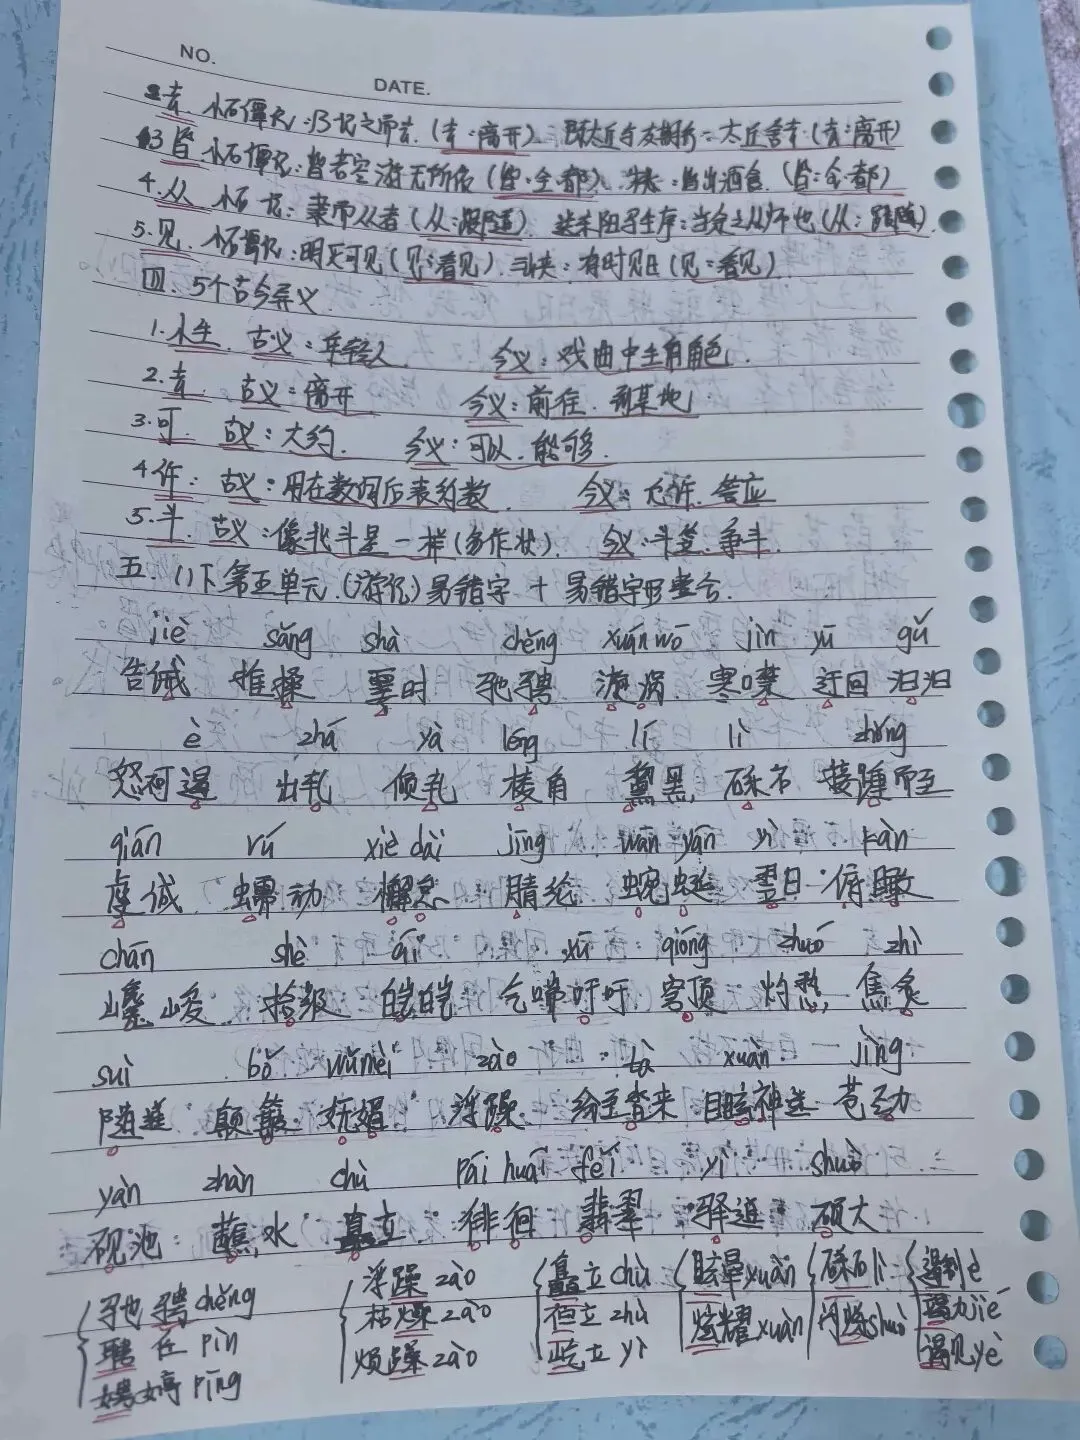 NO.
DATE.
2.去 小石潭记:乃记之而去.(去:离开) 陈太丘与友期行:太丘舍去.(去:离开)
3.皆.小石潭记:皆若空游无所依(皆:全.都)、皆出酒食.(皆:全.都)
4.从 小石 记:隶而从者(从:跟随) 送东阳马生序:当余之从师也(从:跟随).
5.见.小石潭记:明灭可见(见:看见).三峡:有时见日(见:看见)
四.5个古今异义
1.小生.古义:年轻人 今义:戏曲中生角角色.
2.去.古义:离开 今义:前往.到某地
3.可.古义:大约. 今义:可以.能够.
4许.古义:用在数词后表约数 今义:允许.答应
5.斗.古义:像北斗星一样(名作状). 今义:斗笠.争斗.
五.八下第五单元.(游记)易错字+易错字形整合.
jiè sǎng shà chěng xuán wō jìn yū gǔ
告诫 推搡 霎时 驰骋 漩涡 寒噤 迂回 汩汩
è zhá yà léng lí lì zhǒng
怒不可遏 出轧 倾轧 棱角 黧黑 砾石 接踵而至
qián rú xiè dài jīng wān yán yì kàn
虔诚 蠕动 懈怠 腈纶 蜿蜒 翌日 俯瞰
chán shè ái xū qióng zhuó zhì
巉峻 拾级 皑皑 气喘吁吁 穹顶 灼热 焦炙
suì bǒ wǔ mèi zào tà xuàn jìng
隧道 颠簸 妩媚 浮躁 纷至沓来 目眩神迷 苍劲
yàn zhàn chù pái huái fěi yì shuò
砚池 蘸水 矗立 徘徊 翡翠 驿道 硕大
驰骋chěng 浮躁zào 矗立chù 眩晕xuàn 砾石lì 遏制è
聘任pìn 枯燥zào 伫立zhù 炫耀xuàn 闪烁shuò 竭力jié
娉婷pīng 烦躁zào 屹立yì 谒见yè